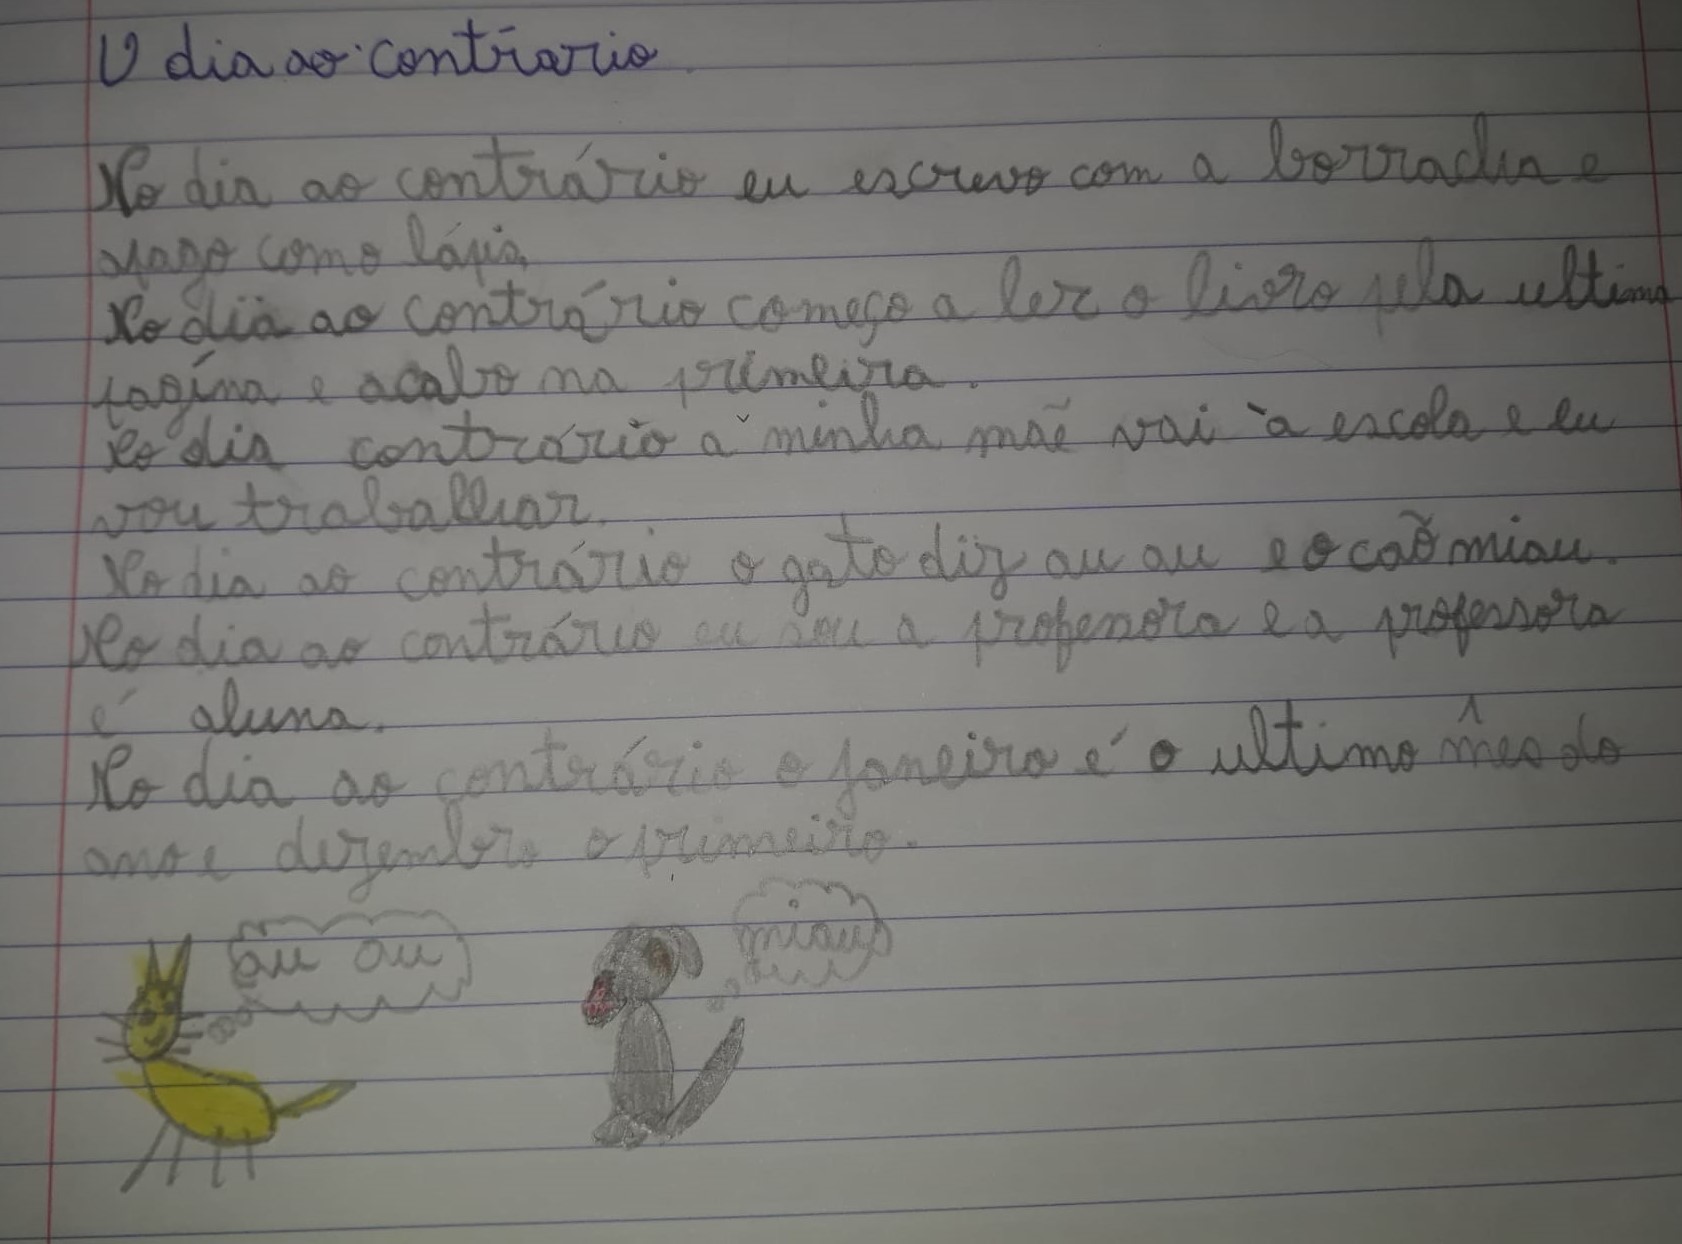 O dia ao contrário
No dia ao contrário eu escrevo com a borracha e
apago como lápis,
No dia ao contrário começo a ler o livro pela ultima
pagína e acabo na primeira.
No dia contrário a minha mãe vai à escola e eu
vou trabalhar.
No dia ao contrário o gato diz au au e o caõ miau.
No dia ao contrário eu sou a professora e a professora
é aluna.
No dia ao contrário o janeiro é o ultimo mês do
ano e dezembro o primeiro.
au au
miau